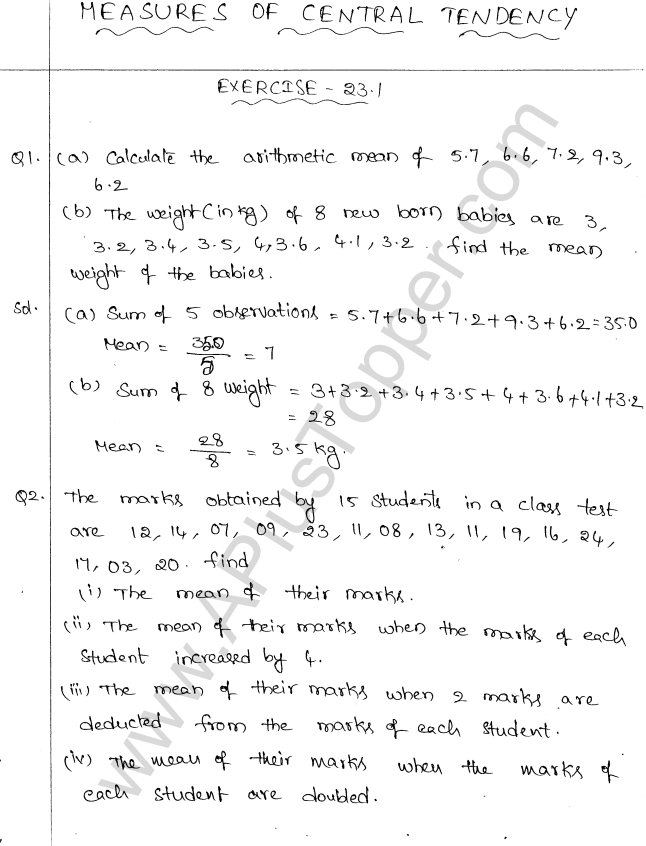 MEASURES OF CENTRAL TENDENCY
EXERCISE - 23.1
Q1. (a) Calculate the arithmetic mean of 5.7, 6.6, 7.2, 9.3,
6.2
(b) The weight (in kg) of 8 new born babies are 3,
3.2, 3.4, 3.5, 4, 3.6, 4.1, 3.2. find the mean
weight of the babies.
Sol. (a) Sum of 5 observations = 5.7+6.6+7.2+9.3+6.2=35.0
Mean = 35.0/5 = 7
(b) Sum of 8 weight = 3+3.2+3.4+3.5+4+3.6+4.1+3.2
= 28
Mean = 28/8 = 3.5 kg.
Q2. The marks obtained by 15 students in a class test
are 12, 14, 07, 09, 23, 11, 08, 13, 11, 19, 16, 24,
17, 03, 20. find
(i) The mean of their marks.
(ii) The mean of their marks when the marks of each
Student increased by 4.
(iii) The mean of their marks when 2 marks are
deducted from the marks of each student.
(iv) The mean of their marks when the marks of
each student are doubled.
www.APlusTopper.com